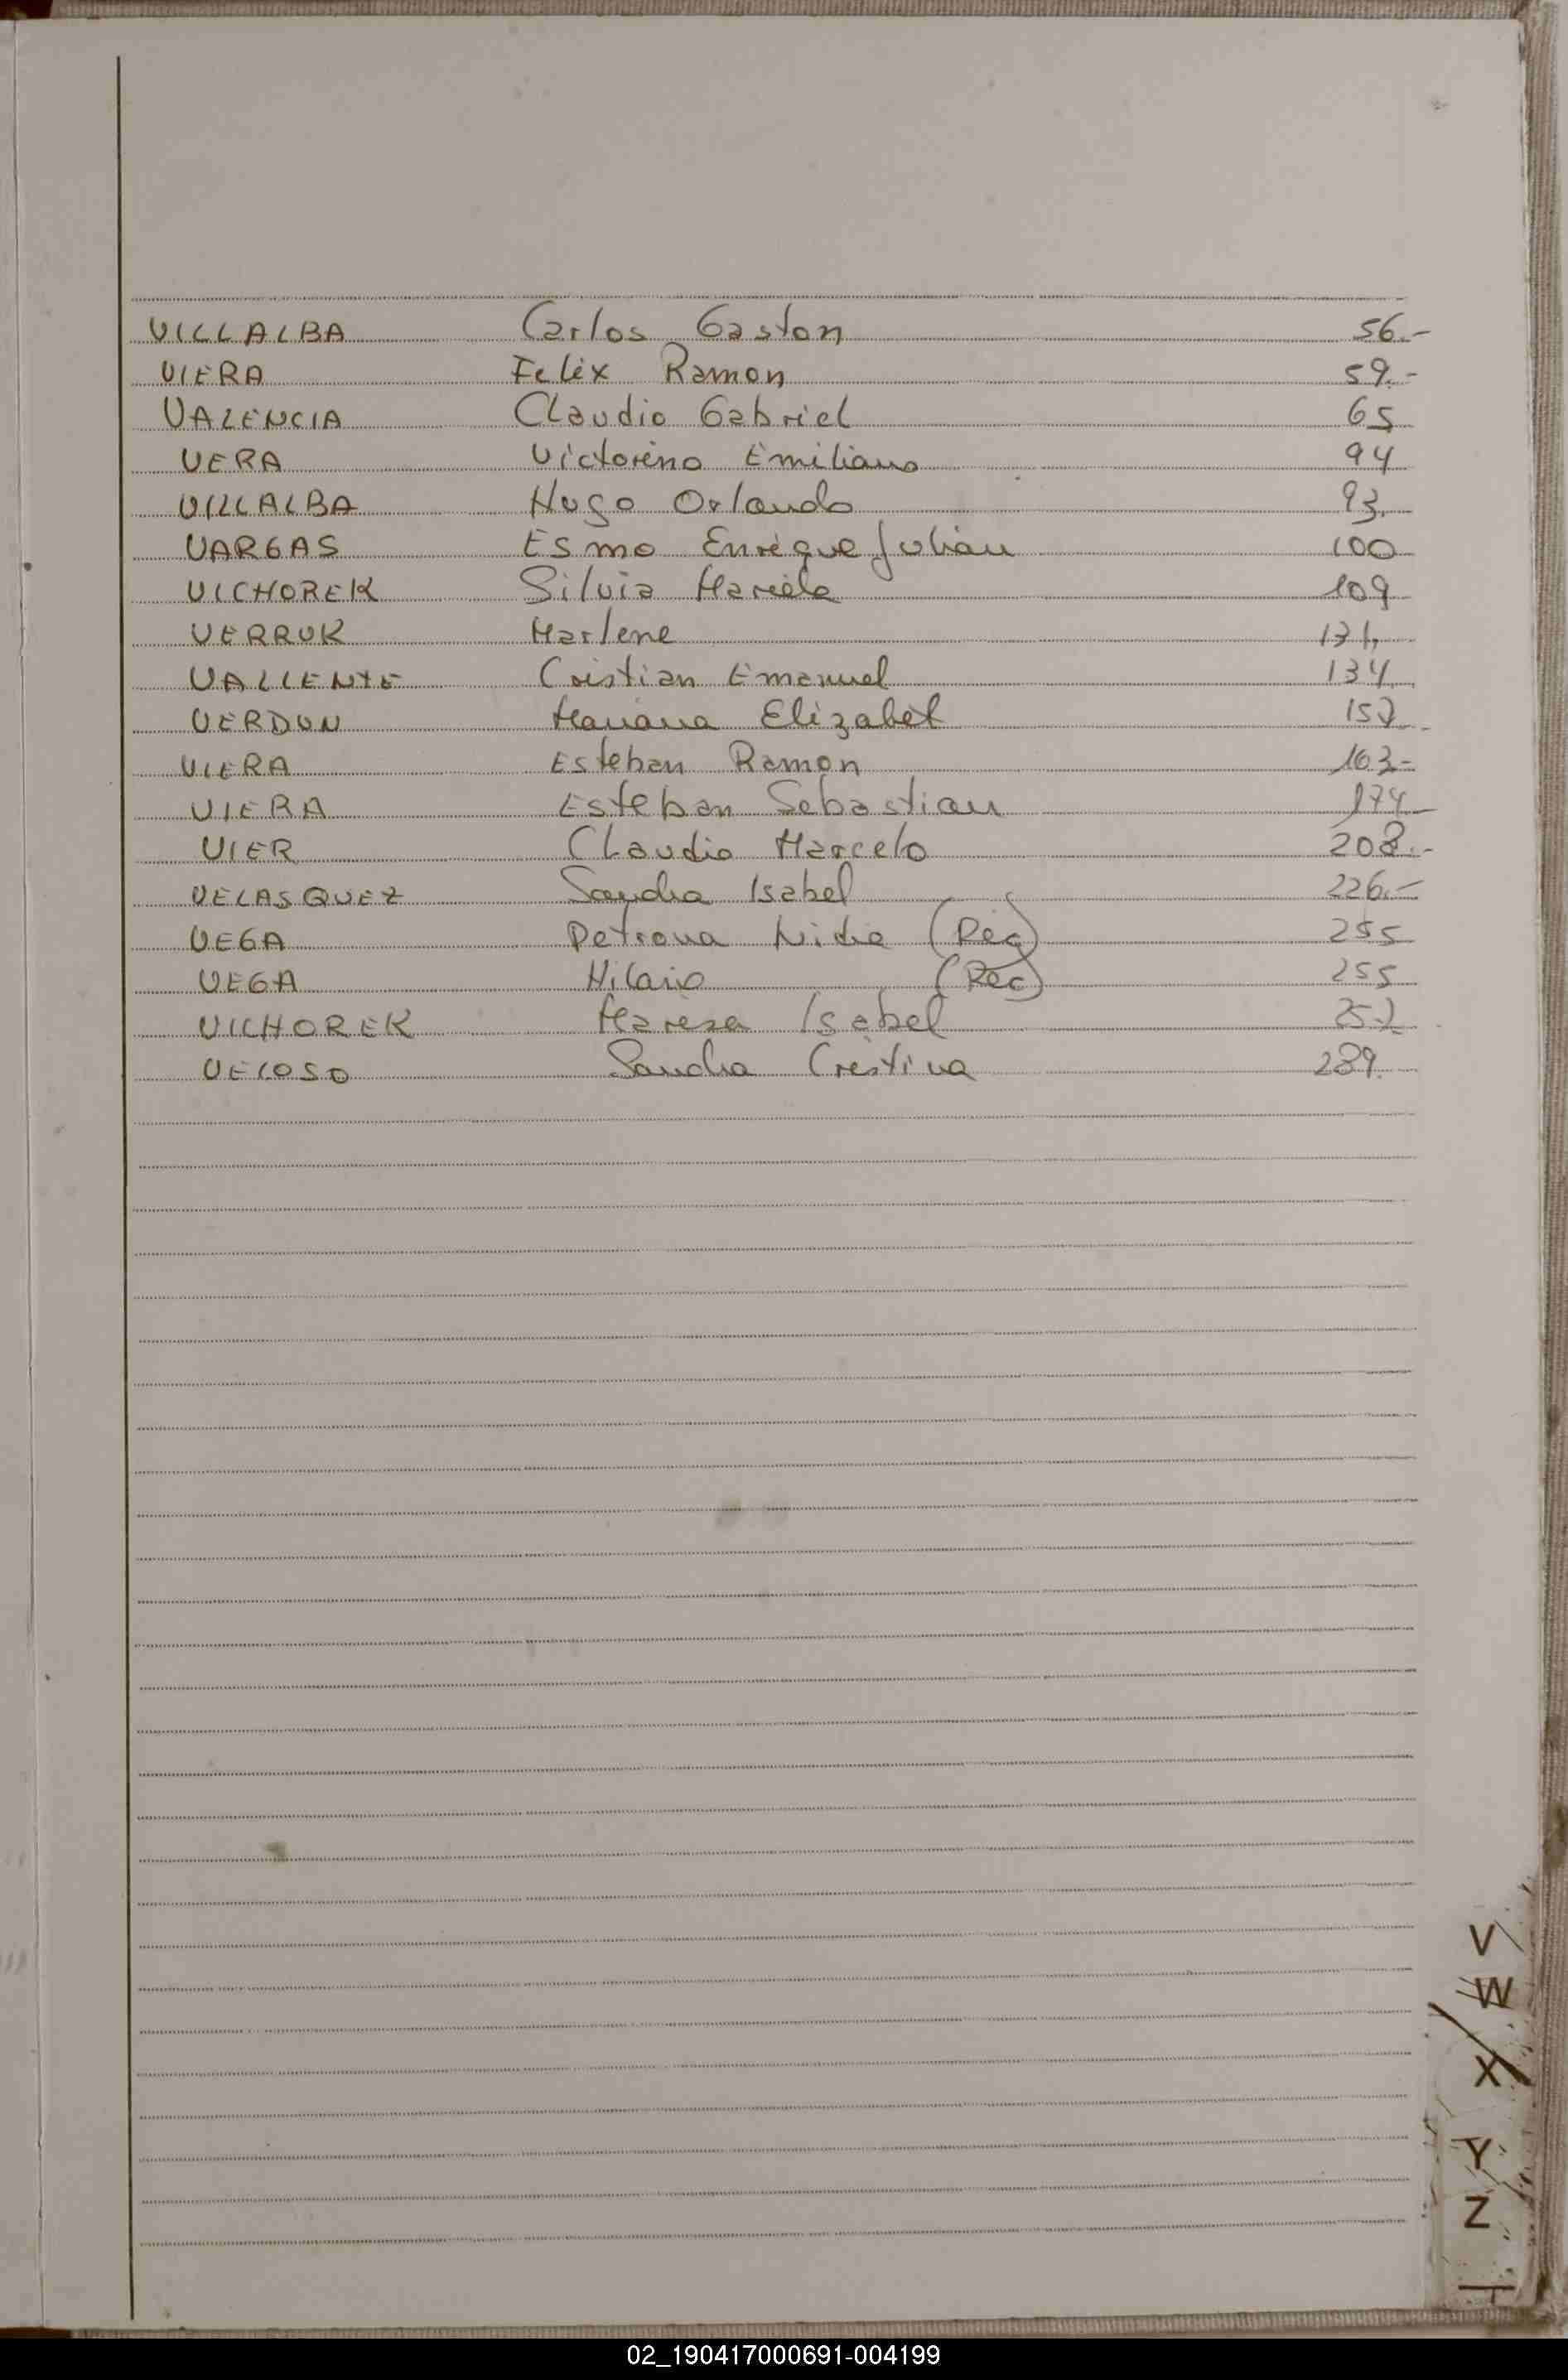 VILLALBA Carlos Gaston 56.-
VIERA Felix Ramon 59.-
VALENCIA Claudio Gabriel 65
VERA Victorino Emiliano 94
VILLALBA Hugo Orlando 93.
VARGAS Esmo Enrique Julian 100
VICHOREK Silvia Mariela 109
VERRUK Marlene 131.
VALLENTE Cristian Emanuel 134
VERDUN Mariana Elizabet 157
VIERA Esteban Ramon 163-
VIERA Esteban Sebastian 174
VIER Claudio Marcelo 208.-
VELASQUEZ Sandra Isabel 226.-
VEGA Petrona Nidia (Rec) 255
VEGA Hilario (Rec) 255
VICHOREK Maria Isabel 257
VELOSO Sandra Cristina 289.
V
W
X
Y
Z
02_190417000691-004199